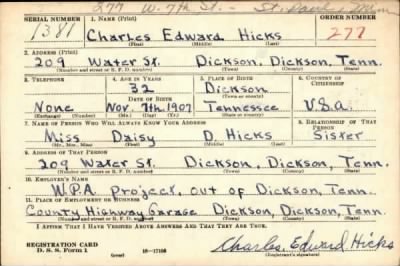 277 W. 7th St. - St. Paul, Minn
SERIAL NUMBER 1. NAME (Print) ORDER NUMBER
1381 Charles Edward Hicks 277
(First) (Middle) (Last)
2. ADDRESS (Print)
209 Water St. Dickson, Dickson, Tenn.
(Number and street or R. F. D. number) (Town) (County) (State)
3. TELEPHONE 4. AGE IN YEARS 5. PLACE OF BIRTH 6. COUNTRY OF CITIZENSHIP
32 Dickson
DATE OF BIRTH (Town or county)
None Nov. 7th, 1907 Tennessee U.S.a.
(Exchange) (Number) (Mo.) (Day) (Yr.) (State or country)
7. NAME OF PERSON WHO WILL ALWAYS KNOW YOUR ADDRESS 8. RELATIONSHIP OF THAT PERSON
Miss Daisy D. Hicks Sister
(Mr., Mrs., Miss) (First) (Middle) (Last)
9. ADDRESS OF THAT PERSON
209 Water St. Dickson, Dickson, Tenn.
(Number and street or R. F. D. number) (Town) (County) (State)
10. EMPLOYER'S NAME
W.P.A. Project, out of Dickson, Tenn.
11. PLACE OF EMPLOYMENT OR BUSINESS
County Highway Garage Dickson, Dickson, Tenn.
(Number and street or R. F. D. number) (Town) (County) (State)
I AFFIRM THAT I HAVE VERIFIED ABOVE ANSWERS AND THAT THEY ARE TRUE.
REGISTRATION CARD
D. S. S. Form 1 (over) Charles Edward Hicks
(Registrant's signature)